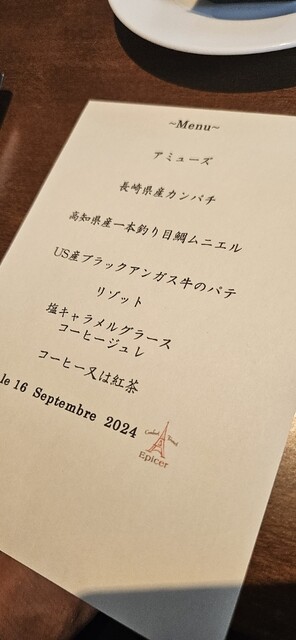 ~Menu~
アミューズ
長崎県産カンパチ
高知県産一本釣り目鯛ムニエル
US産ブラックアンガス牛のパテ
リゾット
塩キャラメルグラース
コーヒージュレ
コーヒー又は紅茶
le 16 Septembre 2024
Epicer